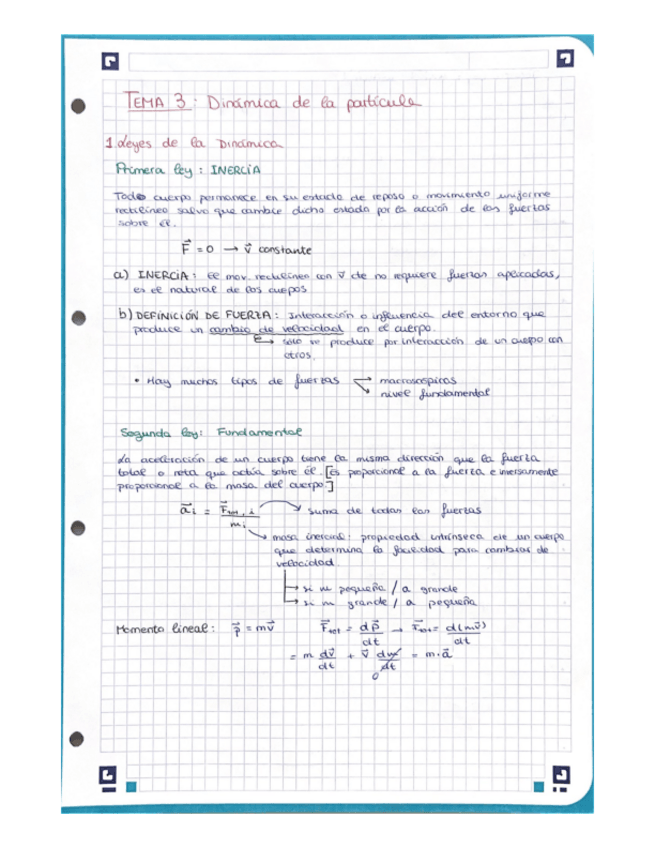 TEMA 3 : Dinámica de la partícula
1. Leyes de la Dinámica
Primera ley : INERCIA
Todo cuerpo permanece en su estado de reposo o movimiento uniforme
rectilíneo salvo que cambie dicho estado por la acción de las fuerzas
sobre él.
F⃗ = 0 → v⃗ constante
a) INERCIA : el mov. rectilíneo con v⃗ de no requiere fuerzas aplicadas,
es el natural de los cuepos
b) DEFINICIÓN DE FUERZA : Interacción o influencia del entorno que
produce un cambio de velocidad en el cuerpo.
↳ solo se produce por interacción de un cuerpo con
otros.
• Hay muchos tipos de fuerzas → macroscópicas
→ nivel fundamental
Segunda ley: Fundamental
La aceleración de un cuerpo tiene la misma dirección que la fuerza
total o neta que actúa sobre él [es proporcional a la fuerza e inversamente
proporcional a la masa del cuerpo.]
a⃗ i = F⃗tot, i / mi → suma de todas las fuerzas
→ masa inercial: propiedad intrínseca de un cuerpo
que determina la facilidad para cambiar de
velocidad.
→ si m pequeña / a grande
→ si m grande / a pequeña
Momento lineal : p⃗ = mv⃗ F⃗tot = dp⃗/dt → F⃗tot = d(mv⃗)/dt
= m dv⃗/dt + v⃗ dm/dt = m·a⃗
0